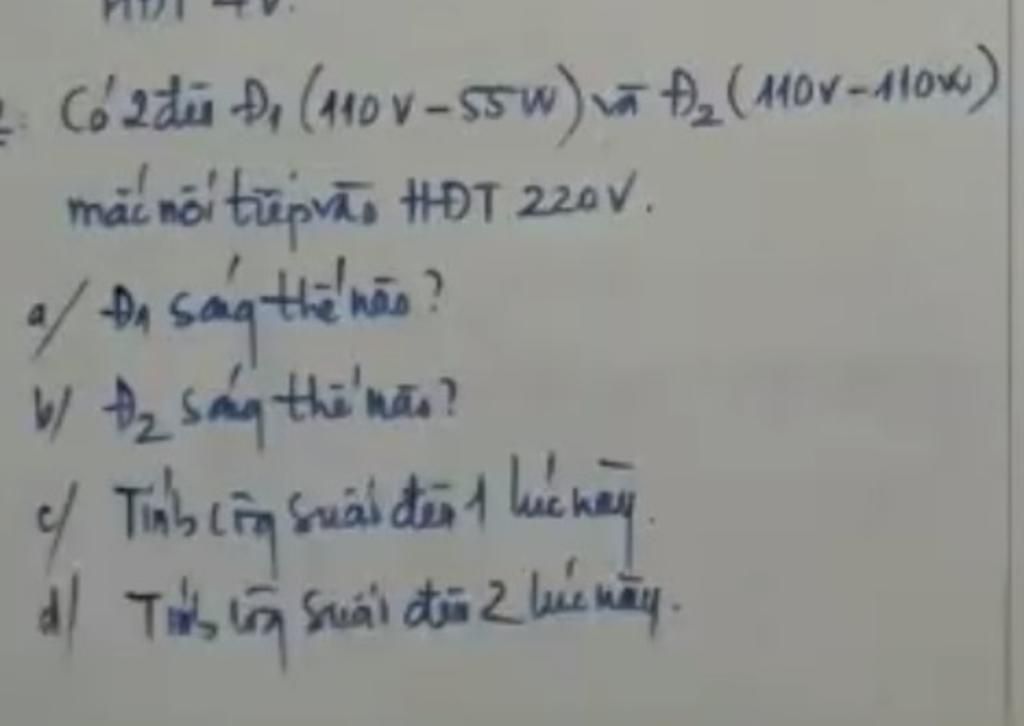 HĐT 4V.
2. Có 2 đèn Đ1 (110V-55W) và Đ2 (110V-110W)
mắc nối tiếp vào HĐT 220V.
a/ Đ1 sáng thế nào?
b/ Đ2 sáng thế nào?
c/ Tính công suất đèn 1 lúc này.
d/ Tính công suất đèn 2 lúc này.